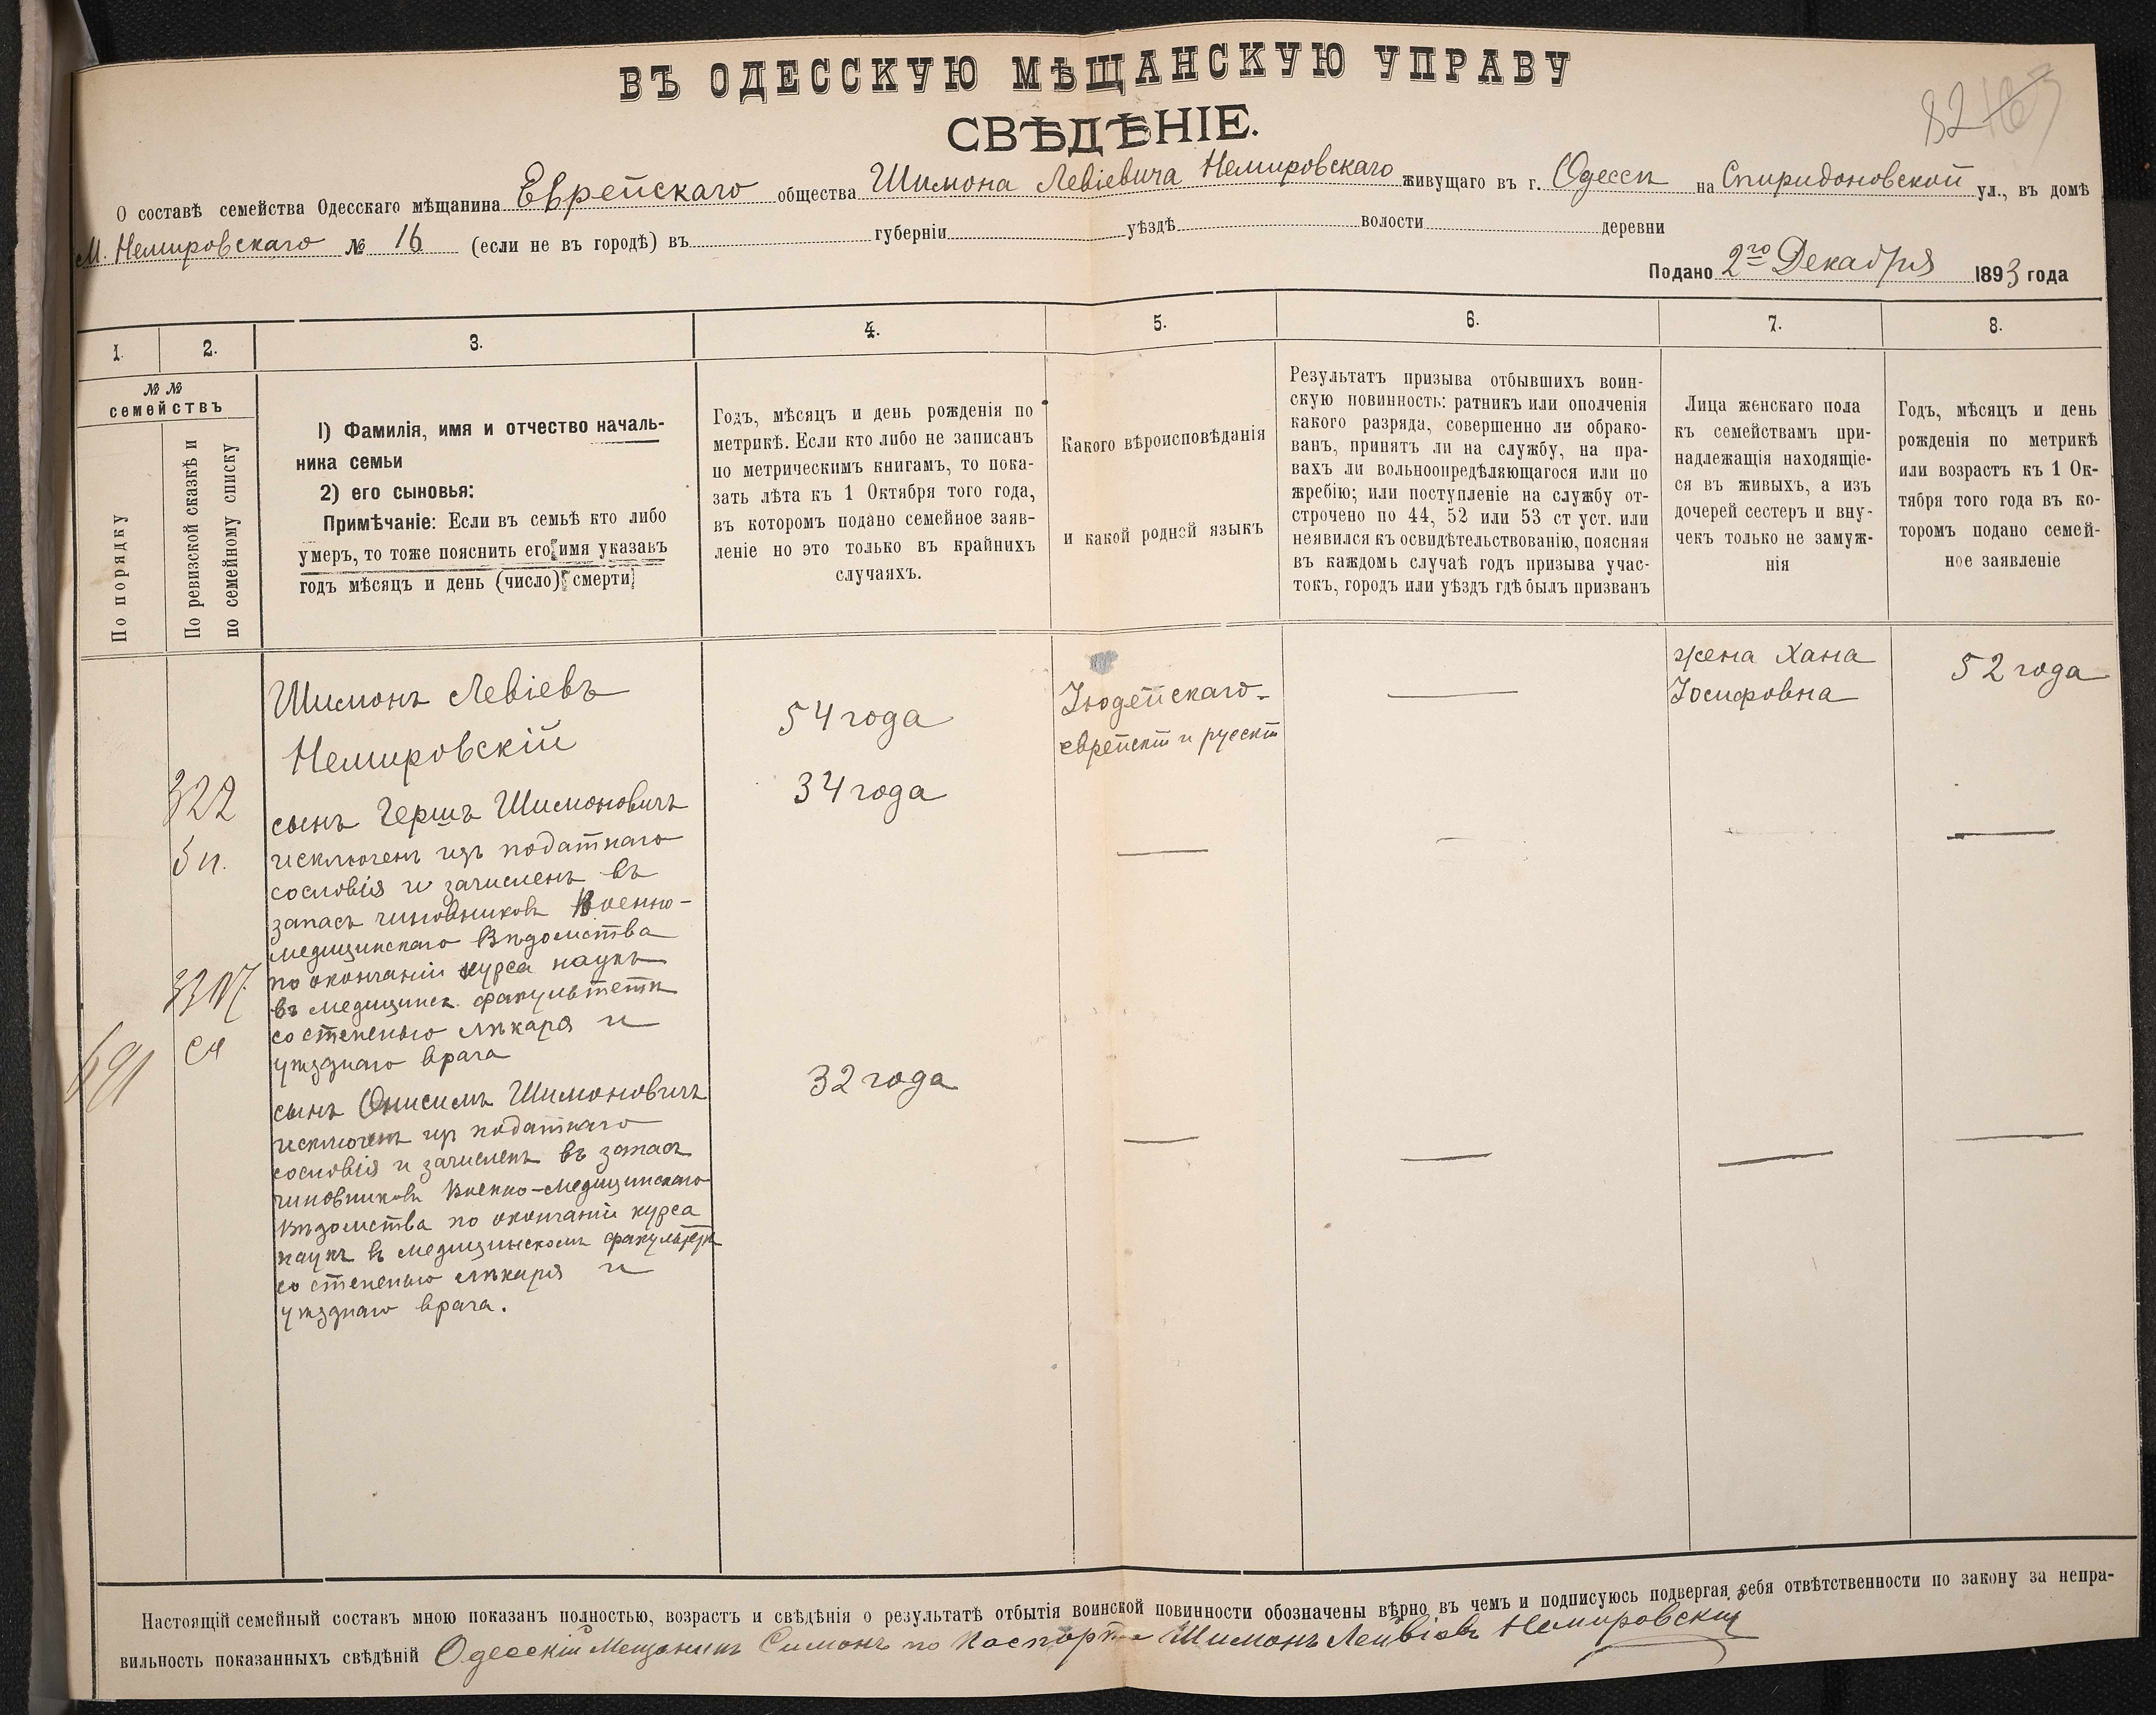 82
ВЪ ОДЕССКУЮ МѢЩАНСКУЮ УПРАВУ
СВѢДѢНІЕ.
О составѣ семейства Одесскаго мѣщанина Еврейскаго общества Шимона Левіевича Немировскаго живущаго въ г. Одессѣ на Спиридоновской ул., въ домѣ
М. Немировскаго № 16 (если не въ городѣ) въ губерніи уѣздѣ волости деревни
Подано 2го Декабря 1893 года
1. 2. 3. 4. 5. 6. 7. 8.
№ №
семействъ
По порядку
По ревизской сказкѣ и
по семейному списку
1) Фамилія, имя и отчество началь-
ника семьи
2) его сыновья:
Примѣчаніе: Если въ семьѣ кто либо
умеръ, то тоже пояснить его имя указавъ
годъ мѣсяцъ и день (число) смерти
Годъ, мѣсяцъ и день рожденія по
метрикѣ. Если кто либо не записанъ
по метрическимъ книгамъ, то пока-
зать лѣта къ 1 Октября того года,
въ которомъ подано семейное заяв-
леніе но это только въ крайнихъ
случаяхъ.
Какого вѣроисповѣданія
и какой родной языкъ
Результатъ призыва отбывшихъ воин-
скую повинность: ратникъ или ополченія
какого разряда, совершенно ли обрако-
ванъ, принятъ ли на службу, на пра-
вахъ ли вольноопредѣляющагося или по
жребію; или поступленіе на службу от-
строчено по 44, 52 или 53 ст уст. или
неявился къ освидѣтельствованію, поясняя
въ каждомъ случаѣ годъ призыва учас-
токъ, городъ или уѣздъ гдѣ былъ призванъ
Лица женскаго пола
къ семействамъ при-
надлежащія находящіе-
ся въ живыхъ, а изъ
дочерей сестеръ и вну-
чекъ только не замуж-
нія
Годъ, мѣсяцъ и день
рожденія по метрикѣ
или возрастъ къ 1 Ок-
тября того года въ ко-
торомъ подано семей-
ное заявленіе
Шимонъ Левіевъ
Немировскій
54 года
Іюдейскаго
еврейскій и русскій
жена Хана
Іосифовна
52 года
322
сынъ Гершъ Шимоновичъ
исключенъ изъ податнаго
сословія и зачисленъ въ
запасъ чиновниковъ Военно-
медицинскаго Вѣдомства
по окончаніи курса наукъ
въ медицинск. факультетѣ
со степенью лѣкаря и
уѣзднаго врача
34 года
691
сынъ Онисимъ Шимоновичъ
исключенъ изъ податнаго
сословія и зачисленъ въ запасъ
чиновниковъ Военно-Медицинскаго
Вѣдомства по окончаніи курса
наукъ въ медицинскомъ факультетѣ
со степенью лѣкаря и
уѣзднаго врача.
32 года
Настоящій семейный составъ мною показанъ полностью, возрастъ и свѣдѣнія о результатѣ отбытія воинской повинности обозначены вѣрно въ чемъ и подписуюсь подвергая себя отвѣтственности по закону за непра-
вильность показанныхъ свѣдѣній Одесскій Мещанинъ Симонъ по Паспорту Шимонъ Лейвіовъ Немировскій